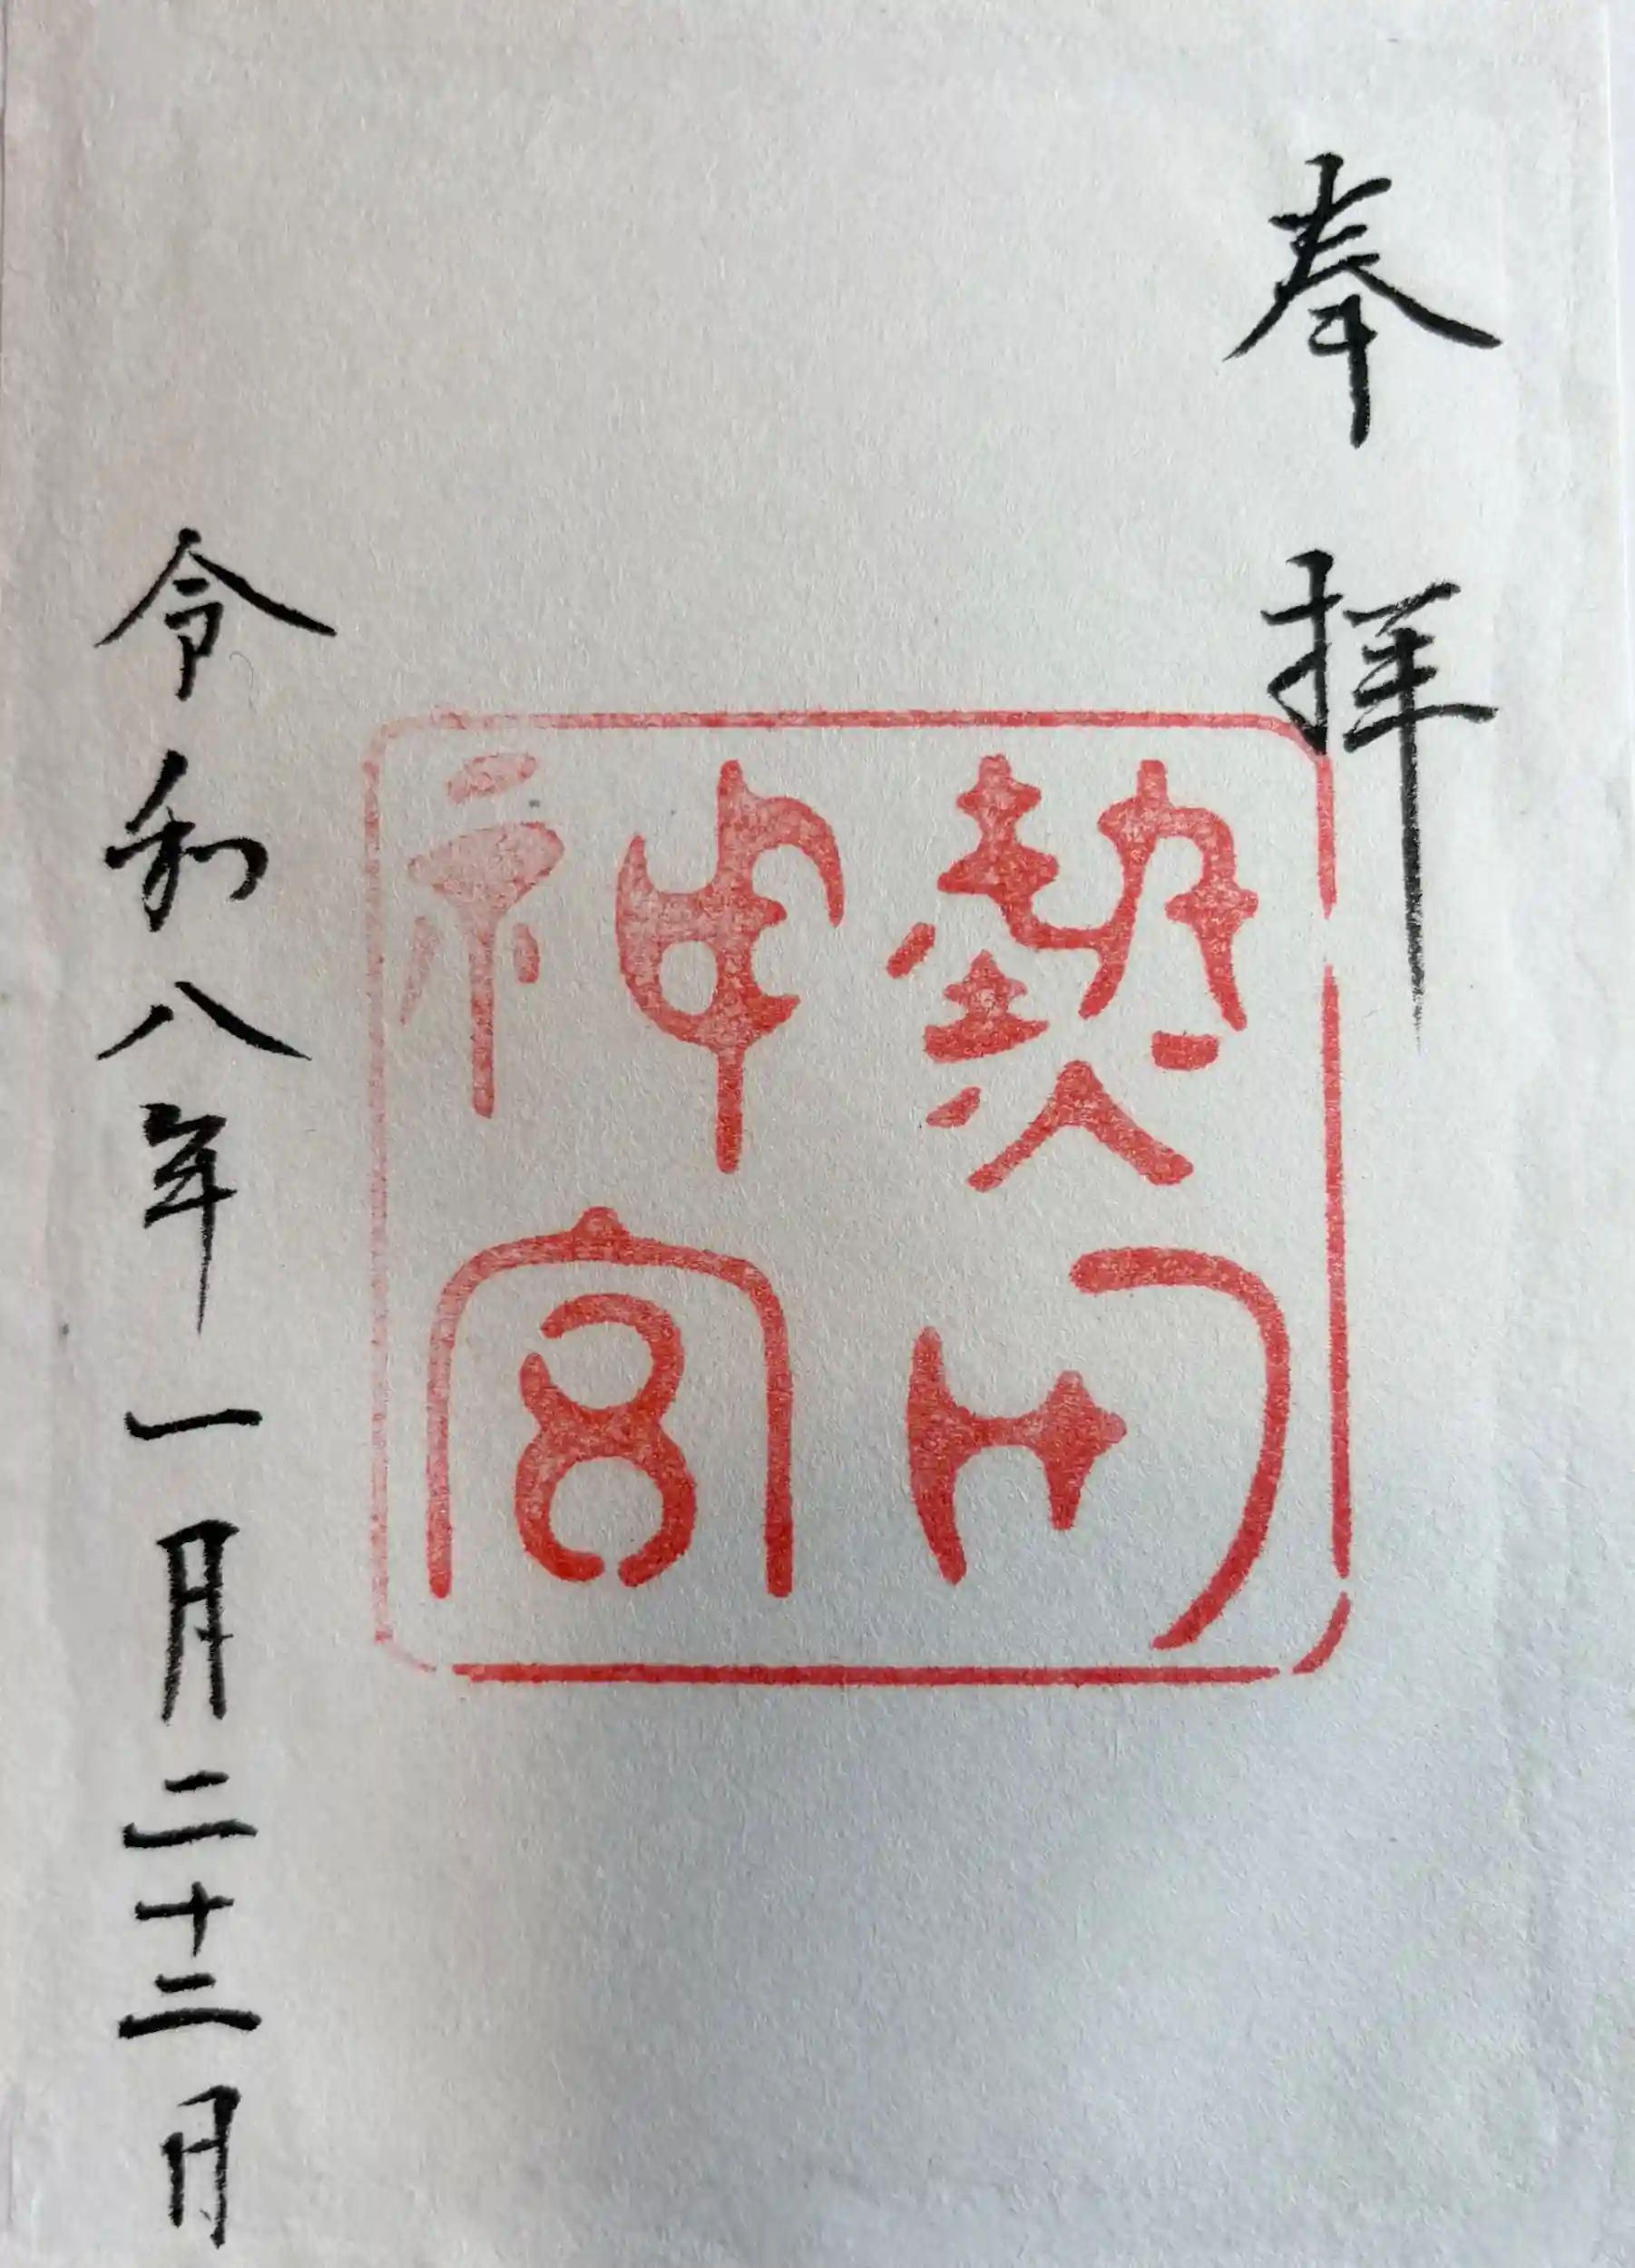 奉拝
熱田
神宮
令和八年一月二十二日